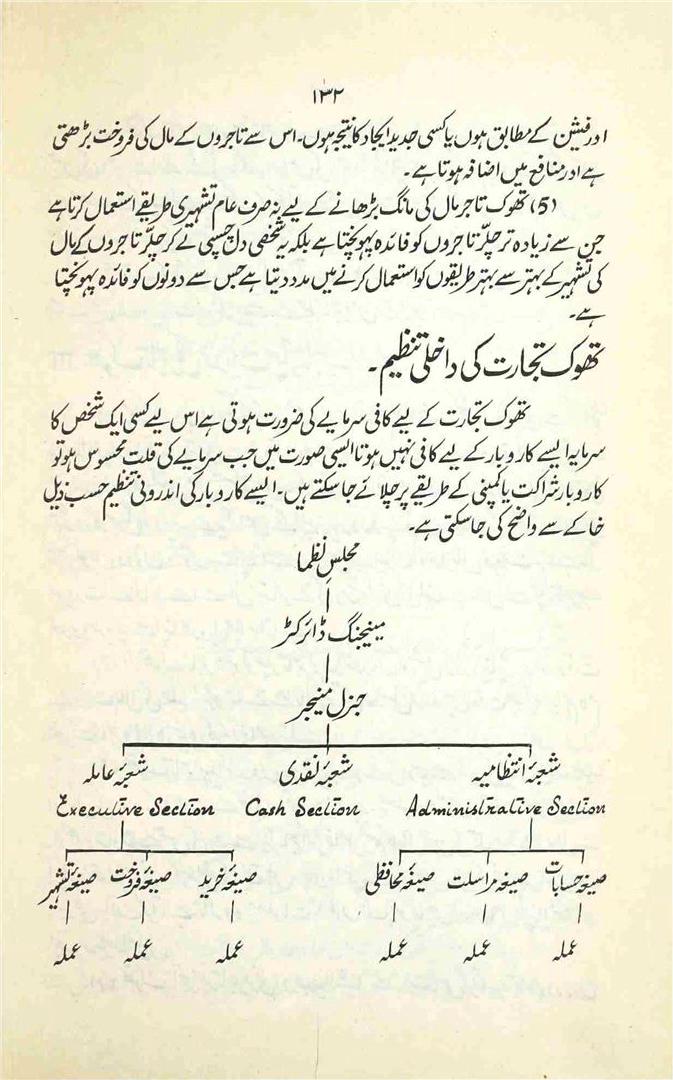 ۱۳۲
اور فیشن کے مطابق ہوں یا کسی جدید ایجاد کا نتیجہ ہوں۔ اس سے تاجروں کے مال کی فروخت بڑھتی
ہے اور منافع میں اضافہ ہوتا ہے۔
(5) تھوک تاجر مال کی مانگ بڑھانے کے لیے نہ صرف عام تشہیری طریقے استعمال کرتا ہے
جن سے زیادہ تر چلّر تاجروں کو فائدہ پہونچتا ہے بلکہ یہ شخصی دل چسپی لے کر چلّر تاجروں کے مال
کی تشہیر کے بہتر سے بہتر طریقوں کو استعمال کرنے میں مدد دیتا ہے جس سے دونوں کو فائدہ پہونچتا
ہے۔
تھوک تجارت کی داخلی تنظیم۔
تھوک تجارت کے لیے کافی سرمایے کی ضرورت ہوتی ہے اس لیے کسی ایک شخص کا
سرمایہ ایسے کاروبار کے لیے کافی نہیں ہوتا ایسی صورت میں جب سرمایے کی قلت محسوس ہو تو
کاروبار شراکت یا کمپنی کے طریقے پر چلائے جا سکتے ہیں۔ ایسے کاروبار کی اندرونی تنظیم حسب ذیل
خاکے سے واضح کی جاسکتی ہے۔
مجلسِ نظما
مینیجنگ ڈائرکٹر
جنرل منیجر
شعبۂ انتظامیہ شعبۂ نقدی شعبۂ عاملہ
Administrative Section Cash Section Executive Section
صیغہ حسابات صیغہ مراسلت صیغہ محافظی صیغہ خرید صیغہ فروخت صیغہ تشہیر
عملہ عملہ عملہ عملہ عملہ عملہ